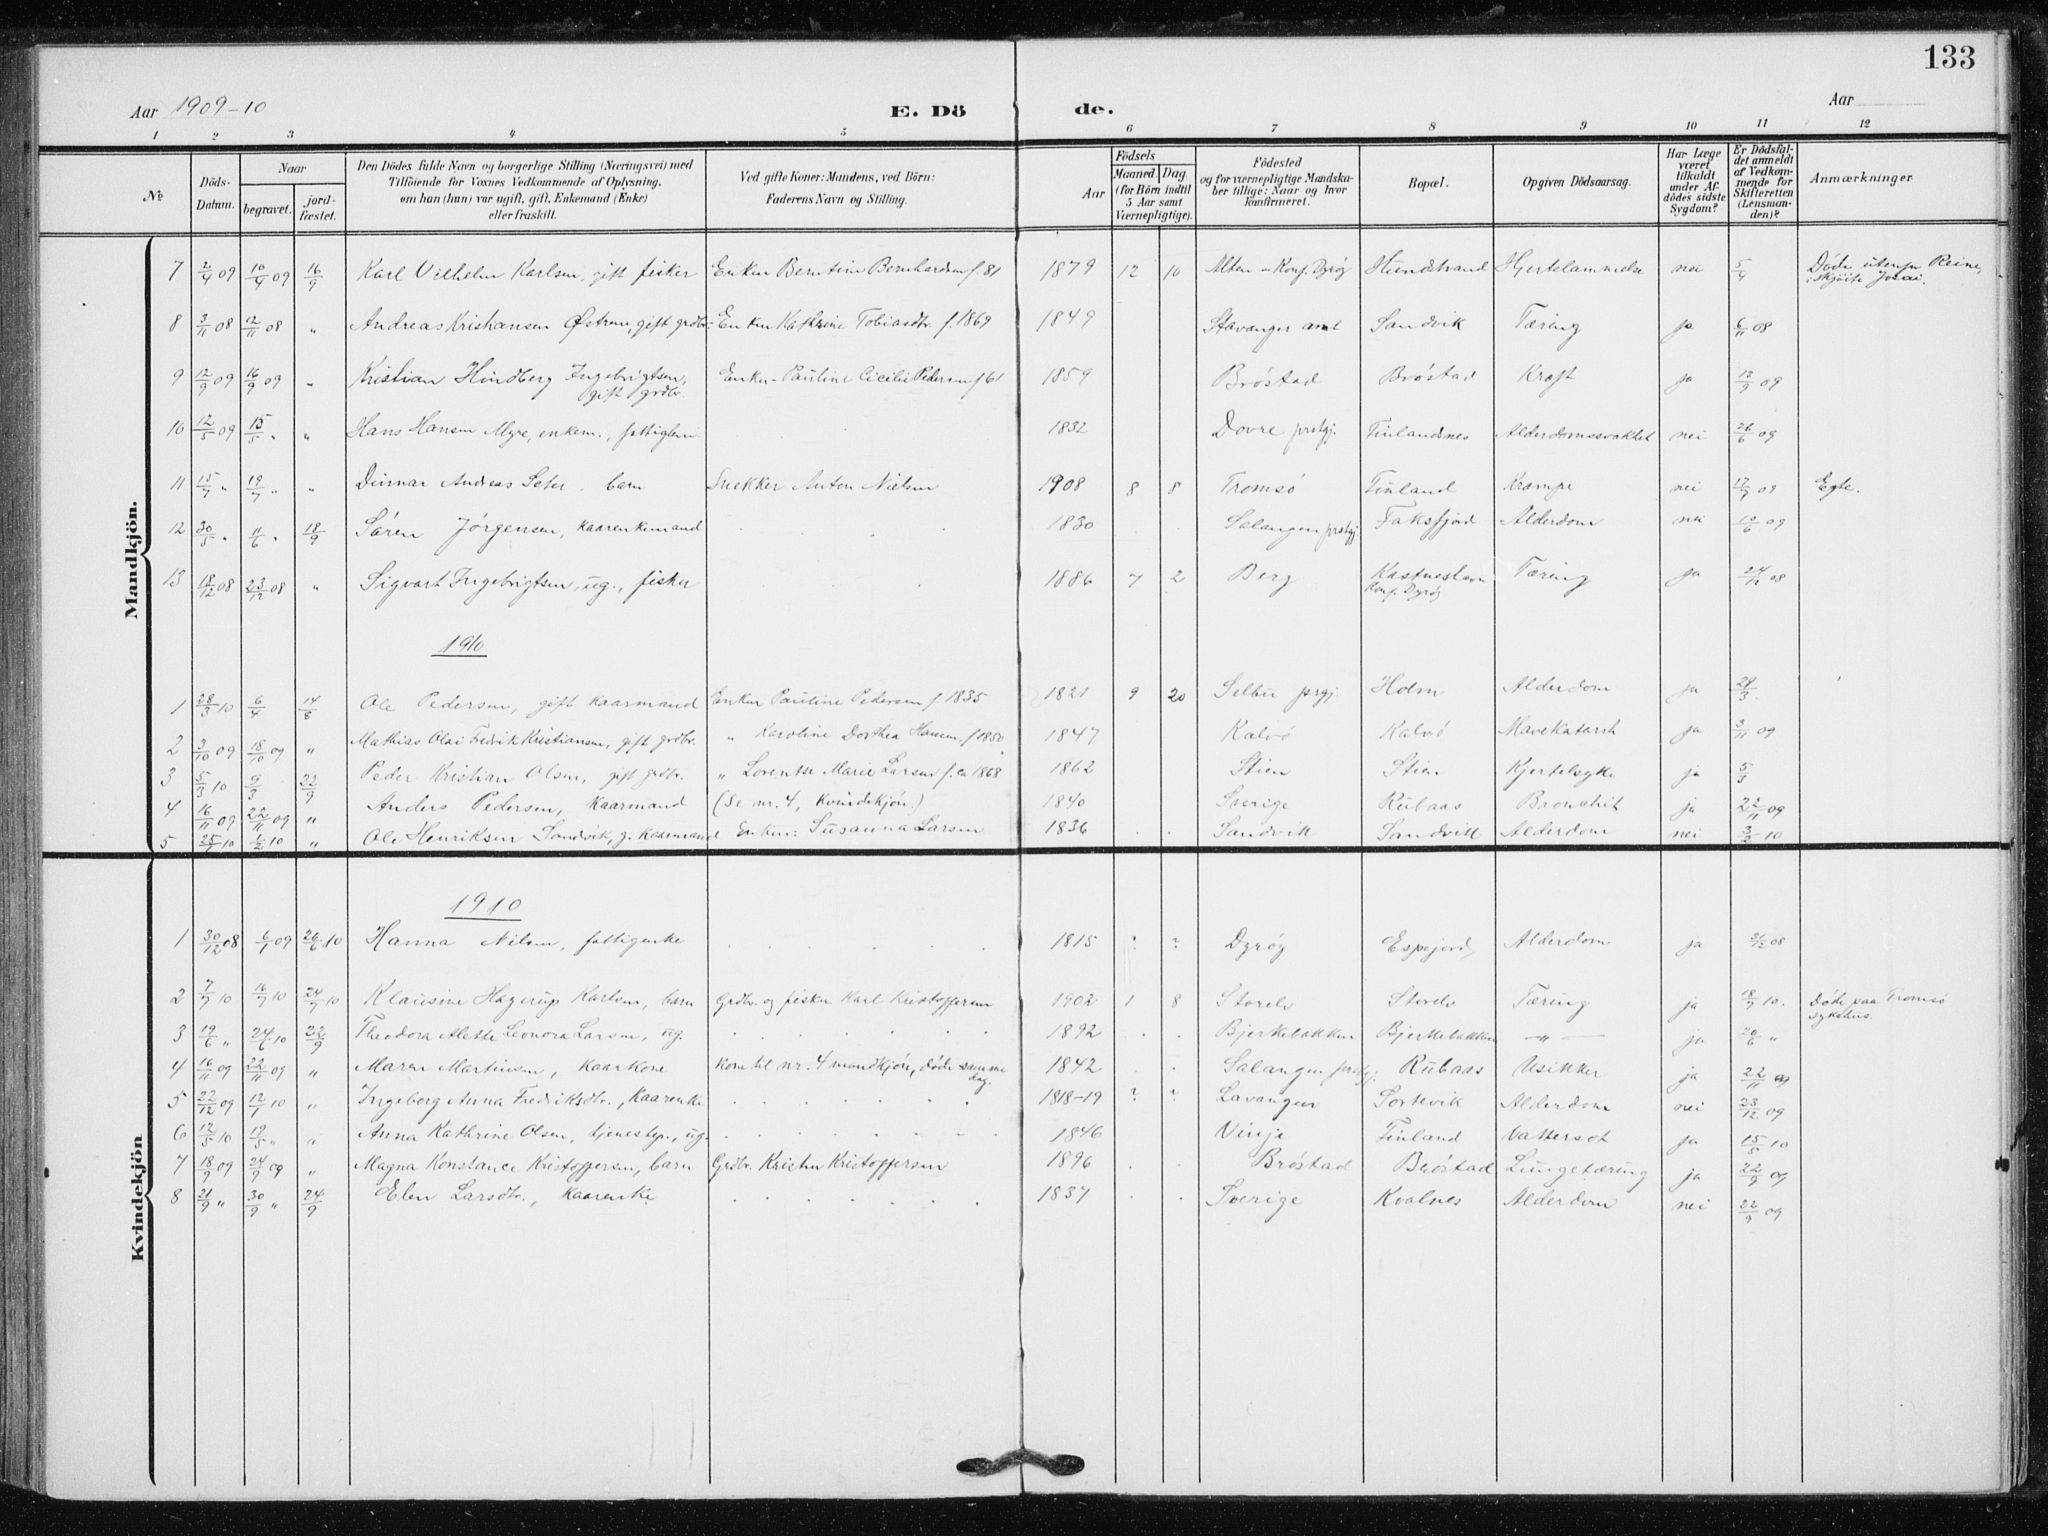 133
Aar 1909-10 E. Dö de. Aar
1 2 3 4 5 6 7 8 9 10 11 12
№ Döds-Datum. Naar begravet. jordfæstet. Den Dödes fulde Navn og borgerlige Stilling (Næringsvei) med Tilföiende for Voxnes Vedkommende af Oplysning, om han (hun) var ugift, gift, Enkemand (Enke) eller fraskilt. Ved gifte Koner: Mandens, ved Börn: Faderens Navn og Stilling. Födsels Aar Maaned. Dag. (for Börn indtil 5 Aar samt Værnepligtige). Födested og for værnepligtige Mandskaber tillige: Naar og hvor konfirmeret. Bopæl. Opgiven Dödsaarsag. Har Læge været tilkaldt under Afdödes sidste Sygdom? Er Dödsfaldet anmeldt af Vedkommende for Skifteretten (Lensmanden)? Anmærkninger
Mandkjön.
7 2/4 09 10/4 09 16/9 Karl Vilhelm Karlsen, gift fisker Enken Berntine Bernhardsen f. 81 1879 12 10 Alten - Konf. Dyrøy Hundstrand Hjertelammelse nei 5/4 Døde utenfor Reine, i skjøite
8 3/11 08 12/11 08 " Andreas Kristiansen gift grdbr. Enken Kathrine Tobiasdtr. f. 1869 1849 Stavanger amt Sandvik Tæring ja 6/11 08
9 12/9 09 16/9 09 " Kristian Hindberg Ingebrigtsen, gift grdbr. Enken Pauline Cicilie Pedersen f 61 1859 Brøstad Brøstad Kræft ja 12/9 09
10 12/5 09 15/5 " " Hans Hansen Myre, enkem., fattiglem 1832 Dovre prstgj. Finlandsnes Alderdomssvakhet nei 26/6 09
11 15/7 " 19/7 " " Andreas Seter. barn Snekker Anton Nielsen 1908 8 8 Tromsø Finland Krampe nei 17/7 09 Egte.
12 30/5 " 11/6 " 18/9 Søren Jørgensen, kaarenkemand 1830 Salangen prstgj. Faksfjord Alderdom nei 10/6 09
13 18/12 08 23/12 08 " Sigvart Ingebrigtsen, ug., fisker 1886 7 2 Berg Kastneshavn Konf. Dyrøy Tæring ja 24/12 08
1910
1 28/3 10 6/4 14/8 Ole Pedersen, gift kaarmand Enken Pauline Pedersen f. 1835 1821 9 20 Selbu prgj. Holm Alderdom ja 29/3.
2 3/10 09 18/10 09 " Mathias Olai Fredrik Kristiansen, gift grdbr. " Karoline Dorthea Hansen, f 1850 1847 Kalvø Kalvø Mavekatarrh ja 3/11 09
3 5/3 10 9/3 22/9 Peder Kristian Olsen, gift grdbr. " Lorentse Marie Larsen f. ca 1868 1862 Stien Stien Kjertelsyke ja 5/3
4 16/11 09 22/11 09 " Anders Pedersen, kaarmand (Se nr. 4, kvindekjøn.) 1840 Sverige Rubaas Bronchit ja 22/11 09
5 25/1 10 1/2 10 " Ole Henriksen Sandvik, g. kaarmand Enken: Susanna Larsen 1836 Sandvik Sandvik Alderdom nei 3/2 10
Kvindekjön
1910
1 30/12 08 6/1 09 26/6 10 Hanna Nilsen, fattigenke 1815 ? ? Dyrøy Espejord Alderdom ja 31/12 08
2 7/7 10 16/7 10 24/7 10 Klausine Hagerup Karlsen, barn Grdbr. og fisker Karl Kristoffersen 1902 1 8 Storelv Storelv Tæring ja 18/7 10. Døde paa Tromsø sykehus.
3 19/6 " 24/6 10 22/9 Theodora Alette Leonora Larsen, ug. 1892 Bjerkebakken Bjerkebakken — " — ja 20/6 "
4 16/11 09 22/11 09 " Maren Martinsen, kaarkone kone til nr. 4 mandkjøn, døde samme dag. 1842 Salangen prstgj. Rubaas Usikker ja 22/11 09
5 22/12 09 12/1 10 " Ingeborg Anna Fredriksdtr., kaarenke 1818-19 ? ? Lavangen Sortevik Alderdom nei 23/12 09
6 12/5 10 19/5 " " Anna Kathrine Olsen, tjenestep., ug. 1846 Vinje Finland Vattersot ja 15/5 10
7 18/9 09 24/9 09 " Magna Konstance Kristoffersen, barn Grdbr. Kristen Kristoffersen 1896 Brøstad Brøstad Lungetæring ja 22/9 09
8 21/9 " 30/9 " 24/9 Elen Larsdtr., kaarenke 1837 Sverige Kvalnes Alderdom nei 22/9 09